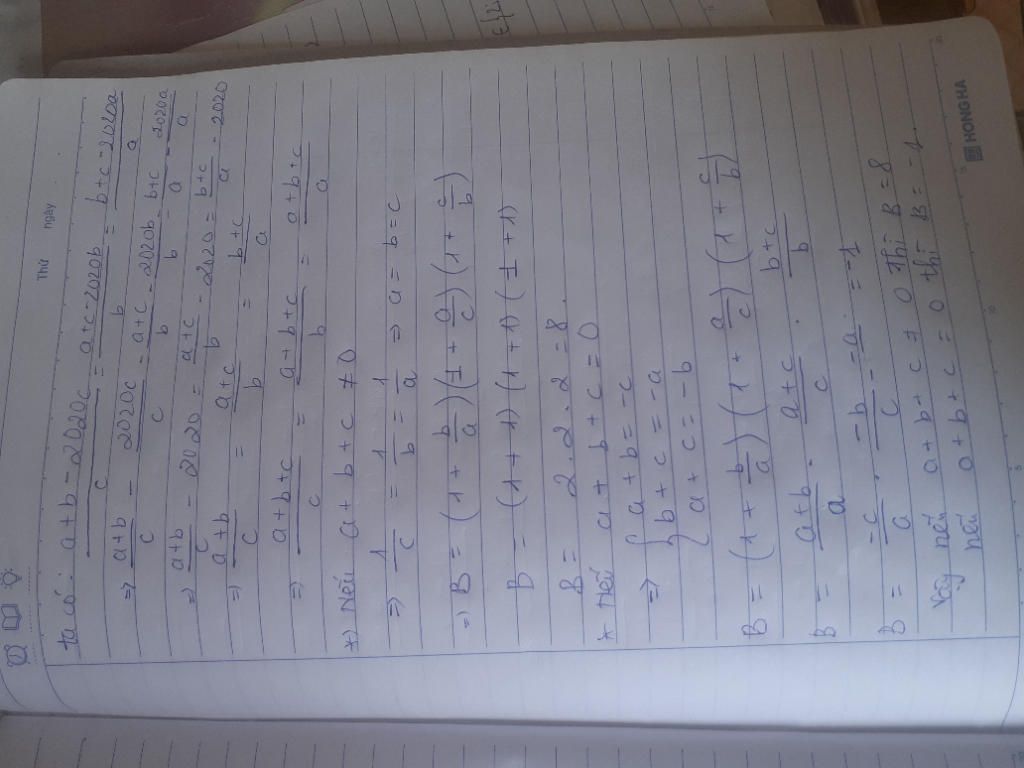 Thứ
ngày
ta có: a+b-2020c/c = a+c-2020b/b = b+c-2020a/a
⇒ a+b/c - 2020c/c = a+c/b - 2020b/b = b+c/a - 2020a/a
⇒ a+b/c - 2020 = a+c/b - 2020 = b+c/a - 2020
⇒ a+b/c = a+c/b = b+c/a
⇒ a+b+c/c = a+b+c/b = a+b+c/a
*) Nếu a+b+c ≠ 0
⇒ 1/c = 1/b = 1/a ⇒ a=b=c
⇒ B = (1 + b/a)(1 + a/c)(1 + c/b)
B = (1+1)(1+1)(1+1)
B = 2.2.2 = 8.
* Nếu a+b+c = 0
⇒ { a+b = -c
b+c = -a
a+c = -b
B = (1 + b/a)(1 + a/c)(1 + c/b)
B = a+b/a . a+c/c . b+c/b
B = -c/a . -b/c . -a/b = -1
Vậy nếu a+b+c ≠ 0 thì B = 8
nếu a+b+c = 0 thì B = -1.
HONG HA